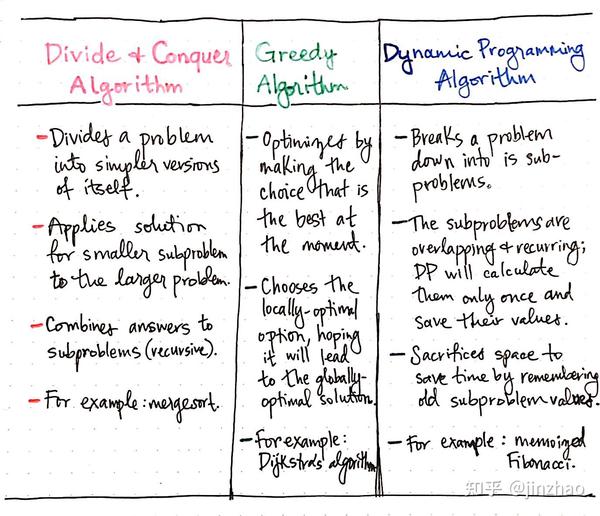 Divide & Conquer
Algorithm
- Divides a problem
into simpler versions
of itself.
- Applies solution
for smaller subproblem
to the larger problem.
- Combines answers to
subproblems (recursive).
- For example: mergesort.
Greedy
Algorithm
- Optimizes by
making the
choice that is
the best at
the moment.
- Chooses the
locally-optimal
option, hoping
it will lead
to the globally-
optimal solution.
- For example:
Dijkstra's algorithm
Dynamic Programming
Algorithm
- Breaks a problem
down into is sub-
problems.
- The subproblems are
overlapping & recurring;
DP will calculate
them only once and
save their values.
- Sacrifices space to
save time by remembering
old subproblem values.
- For example: memoized
Fibonacci.
知乎 @jinzhao